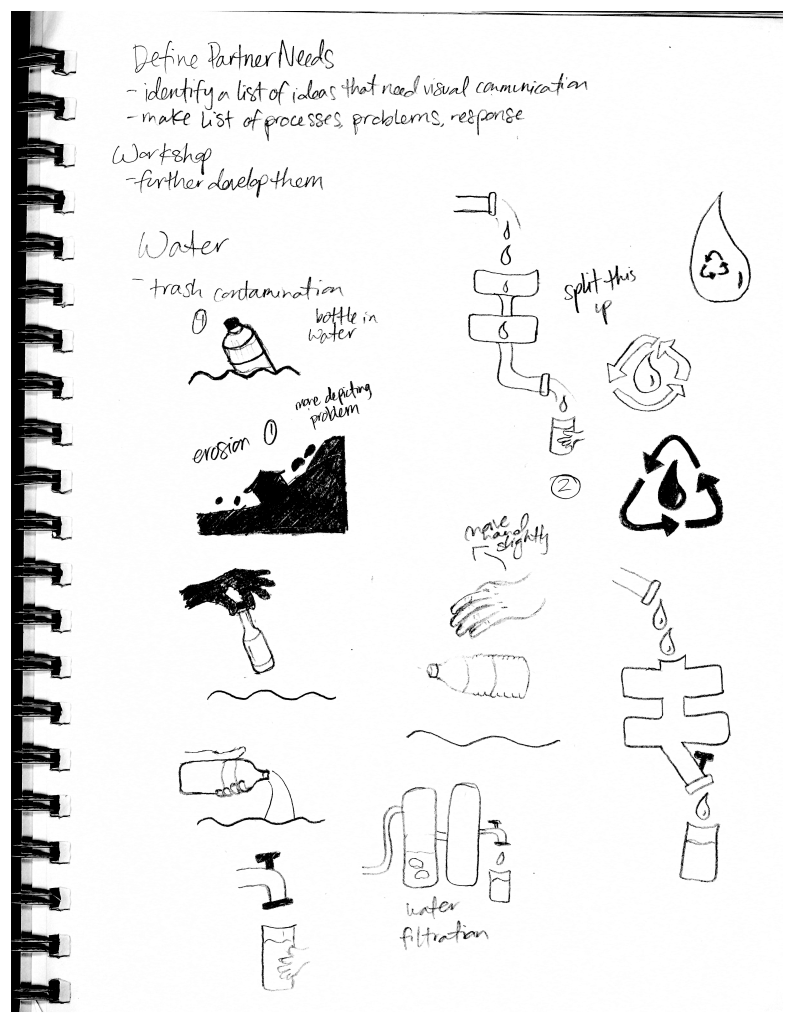 Define Partner Needs
- identify a list of ideas that need visual communication
- make list of processes, problems, response
Workshop
- further develop them
Water
- trash contamination
bottle in
water
erosion ①
more depicting
problem
split this
up
②
move
hand
slightly
water
filtration